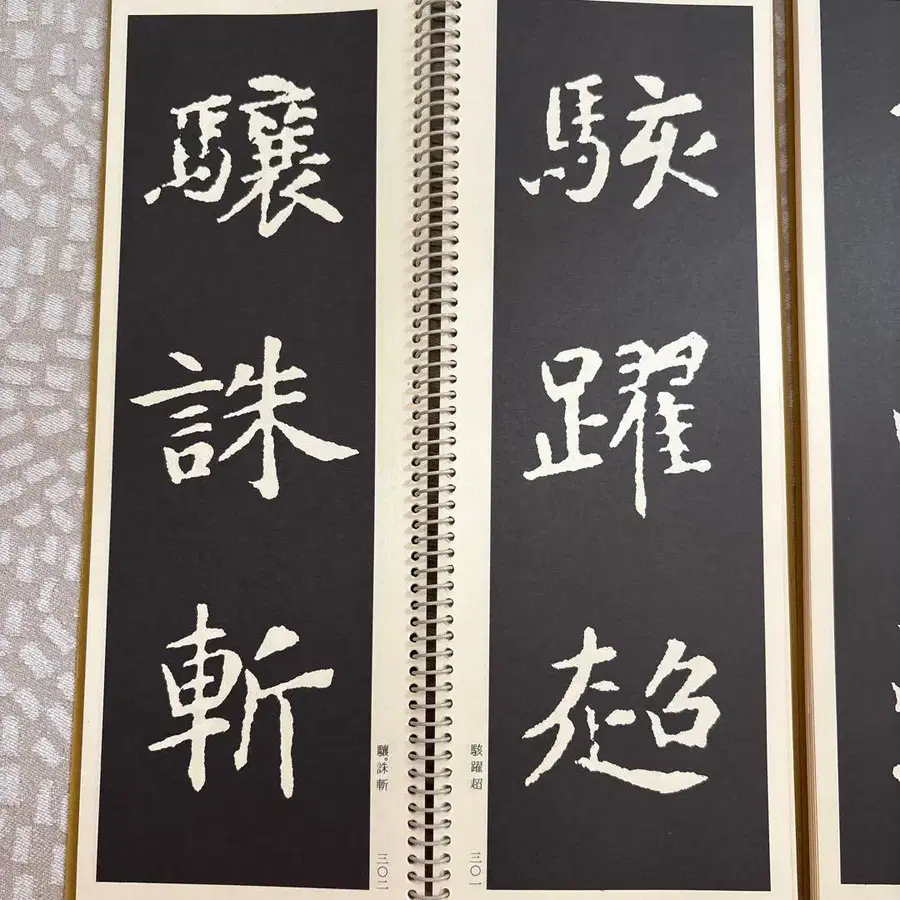 駭
躍
超
駭躍超
三〇一
驤
誅
斬
驤。誅斬
三〇二